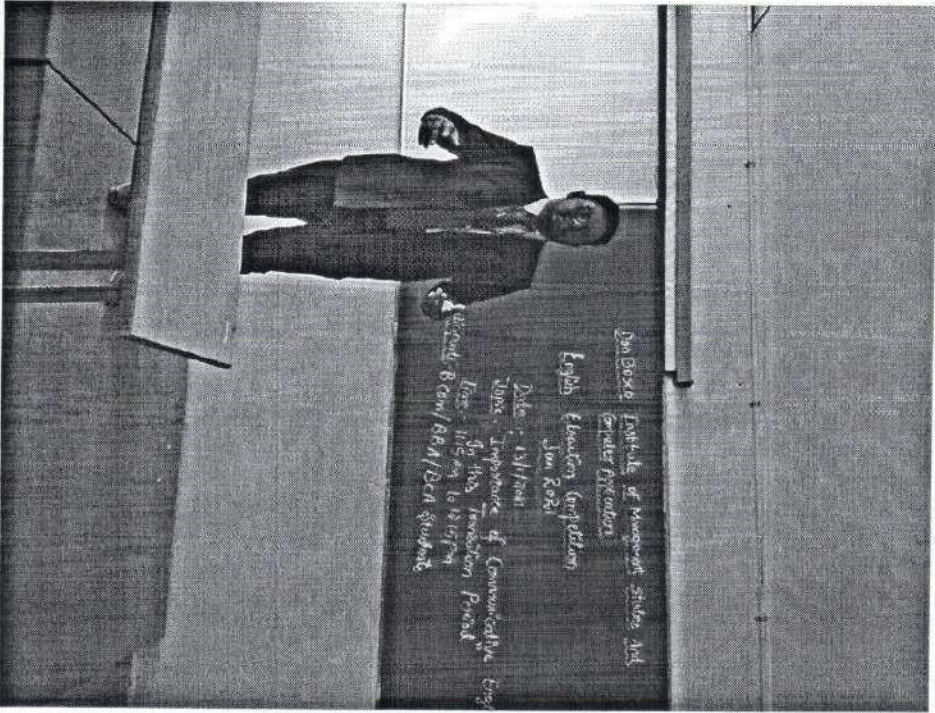 Don Bosco Institute of Management Studies And
Computer Application
English Elocution Competition
Jan 2021
Date : 13/1/2021
Topic : Importance of Communicative Eng
In this Transition Period"
Time : 11:15 am to 12:15 pm
B com/BBA/BCA Students